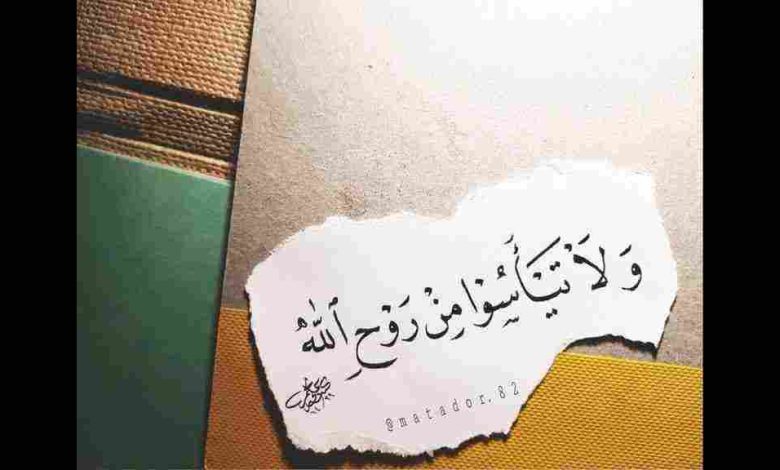 وَ لَا تَيْأَسُوْا مِنْ رَوْحِ ٱللّٰهِ
@matador.82